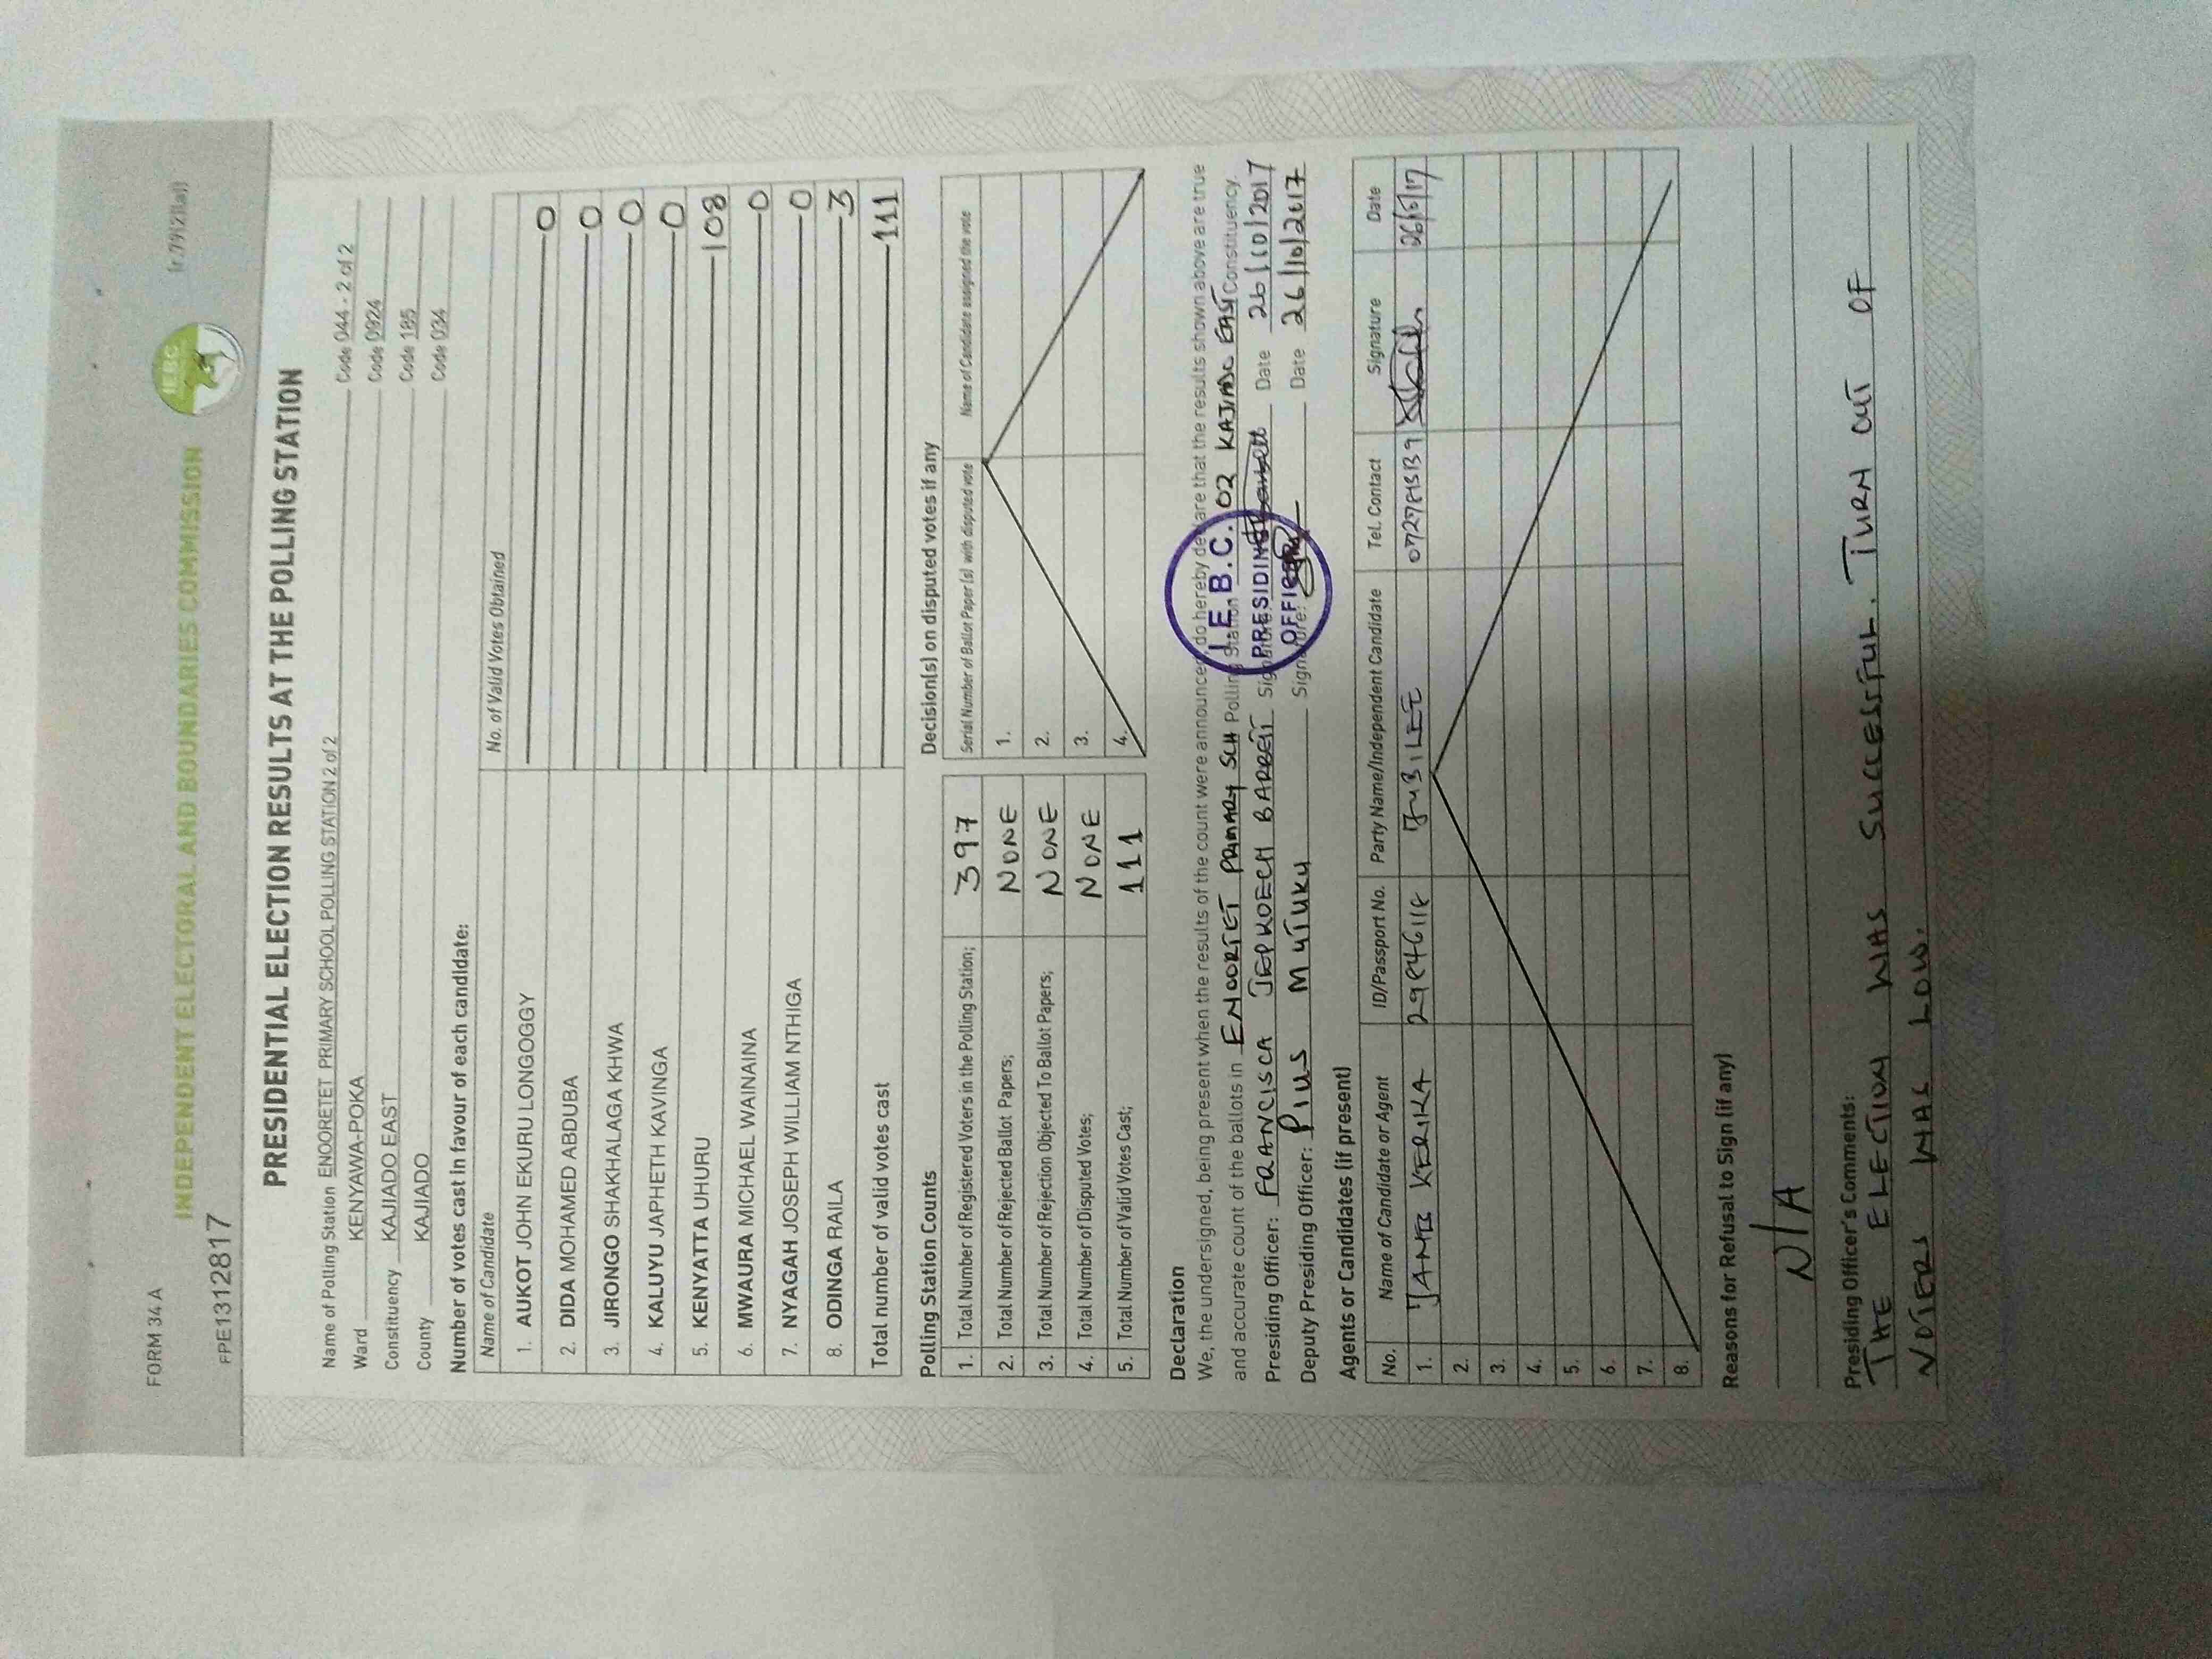 FORM 34 A
INDEPENDENT ELECTORAL AND BOUNDARIES COMMISSION
IEBC
(r.79)(2)(a))
FPE1312817
PRESIDENTIAL ELECTION RESULTS AT THE POLLING STATION
Name of Polling Station ENOORETET PRIMARY SCHOOL POLLING STATION 2 of 2 Code 044 - 2 of 2
Ward KENYAWA-POKA Code 0924
Constituency KAJIADO EAST Code 185
County KAJIADO Code 034
Number of votes cast in favour of each candidate:
Name of Candidate No. of Valid Votes Obtained
1. AUKOT JOHN EKURU LONGOGGY 0
2. DIDA MOHAMED ABDUBA 0
3. JIRONGO SHAKHALAGA KHWA 0
4. KALUYU JAPHETH KAVINGA 0
5. KENYATTA UHURU 108
6. MWAURA MICHAEL WAINAINA 0
7. NYAGAH JOSEPH WILLIAM NTHIGA 0
8. ODINGA RAILA 3
Total number of valid votes cast 111
Polling Station Counts
1. Total Number of Registered Voters in the Polling Station; 397
2. Total Number of Rejected Ballot Papers; NONE
3. Total Number of Rejection Objected To Ballot Papers; NONE
4. Total Number of Disputed Votes; NONE
5. Total Number of Valid Votes Cast; 111
Decision(s) on disputed votes if any
Serial Number of Ballot Paper (s) with disputed vote Name of Candidate assigned the vote
1.
2.
3.
4.
Declaration
We, the undersigned, being present when the results of the count were announced, do hereby declare that the results shown above are true
and accurate count of the ballots in ENOORTET PRIMARY SCH Polling Station 02 KAJIADO EAST Constituency.
Presiding Officer: FRANCISCA JEPKOECH BARBETT Signature: Date 26/10/2017
Deputy Presiding Officer: PIUS MUTUKU Signature: Date 26/10/2017
I.E.B.C.
PRESIDING
OFFICER
Agents or Candidates (if present)
No. Name of Candidate or Agent ID/Passport No. Party Name/Independent Candidate Tel. Contact Signature Date
1. KERIKA JUBILEE
2.
3.
4.
5.
6.
7.
8.
Reasons for Refusal to Sign (if any)
N/A
Presiding Officer's Comments:
THE ELECTION WAS SUCCESSFUL. TURN OUT OF
VOTERS WAS LOW.